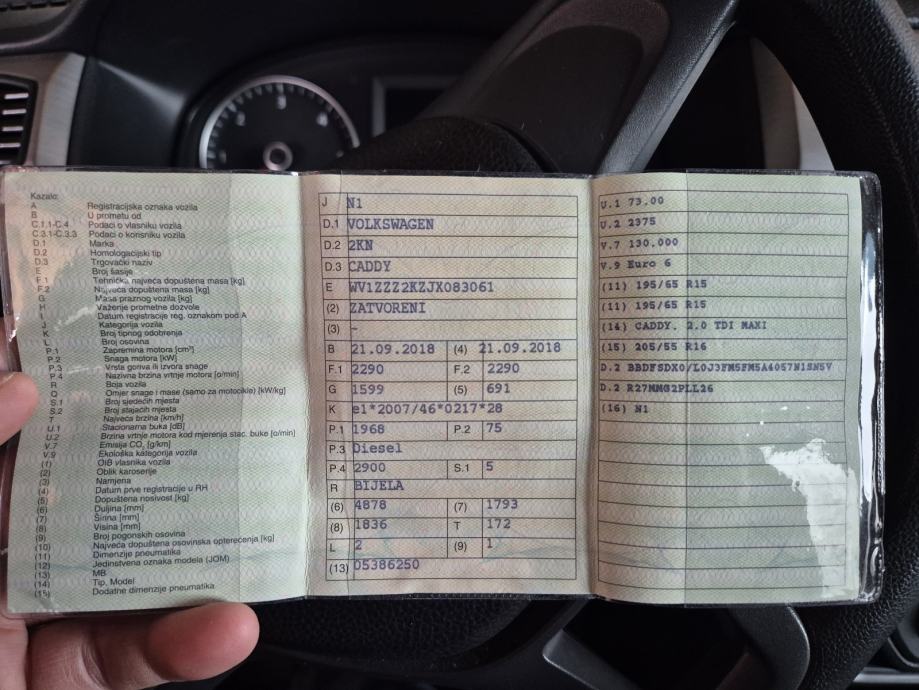 Kazalo:
A Registracijska oznaka vozila
B U prometu od
C.1.1-C.4 Podaci o vlasniku vozila
C.3.1-C.3.3 Podaci o korisniku vozila
D.1 Marka
D.2 Homologacijski tip
D.3 Trgovački naziv
E Broj šasije
F.1 Tehnička najveća dopuštena masa [kg]
F.2 Najveća dopuštena masa [kg]
G Masa praznog vozila [kg]
H Važenje prometne dozvole
I Datum registracije reg. oznakom pod A
J Kategorija vozila
K Broj tipnog odobrenja
L Broj osovina
P.1 Zapremina motora [cm³]
P.2 Snaga motora [kW]
P.3 Vrsta goriva ili izvora snage
P.4 Nazivna brzina vrtnje motora [o/min]
R Boja vozila
Q Omjer snage i mase (samo za motocikle) [kW/kg]
S.1 Broj sjedećih mjesta
S.2 Broj stajaćih mjesta
T Najveća brzina [km/h]
U.1 Stacionarna buka [dB]
U.2 Brzina vrtnje motora kod mjerenja stac. buke [o/min]
V.7 Emisija CO₂ [g/km]
V.9 Ekološka kategorija vozila
(1) OIB vlasnika vozila
(2) Oblik karoserije
(3) Namjena
(4) Datum prve registracije u RH
(5) Dopuštena nosivost [kg]
(6) Duljina [mm]
(7) Širina [mm]
(8) Visina [mm]
(9) Broj pogonskih osovina
(10) Najveća dopuštena osovinska opterećenja [kg]
(11) Dimenzije pneumatika
(12) Jedinstvena oznaka modela (JOM)
(13) MB
(14) Tip, Model
(15) Dodatne dimenzije pneumatika
J N1
D.1 VOLKSWAGEN
D.2 2KN
D.3 CADDY
E WV1ZZZ2KZJX083061
(2) ZATVORENI
(3) -
B 21.09.2018 (4) 21.09.2018
F.1 2290 F.2 2290
G 1599 (5) 691
K e1*2007/46*0217*28
P.1 1968 P.2 75
P.3 Diesel
P.4 2900 S.1 5
R BIJELA
(6) 4878 (7) 1793
(8) 1836 T 172
L 2 (9) 1
(13) 05386250
U.1 73.00
U.2 2375
V.7 130.000
V.9 Euro 6
(11) 195/65 R15
(11) 195/65 R15
(14) CADDY. 2.0 TDI MAXI
(15) 205/55 R16
D.2 BBDFSDX0/LOJ3FM5FM5A4057N1SN5V
D.2 R27MMG2PLL26
(16) N1